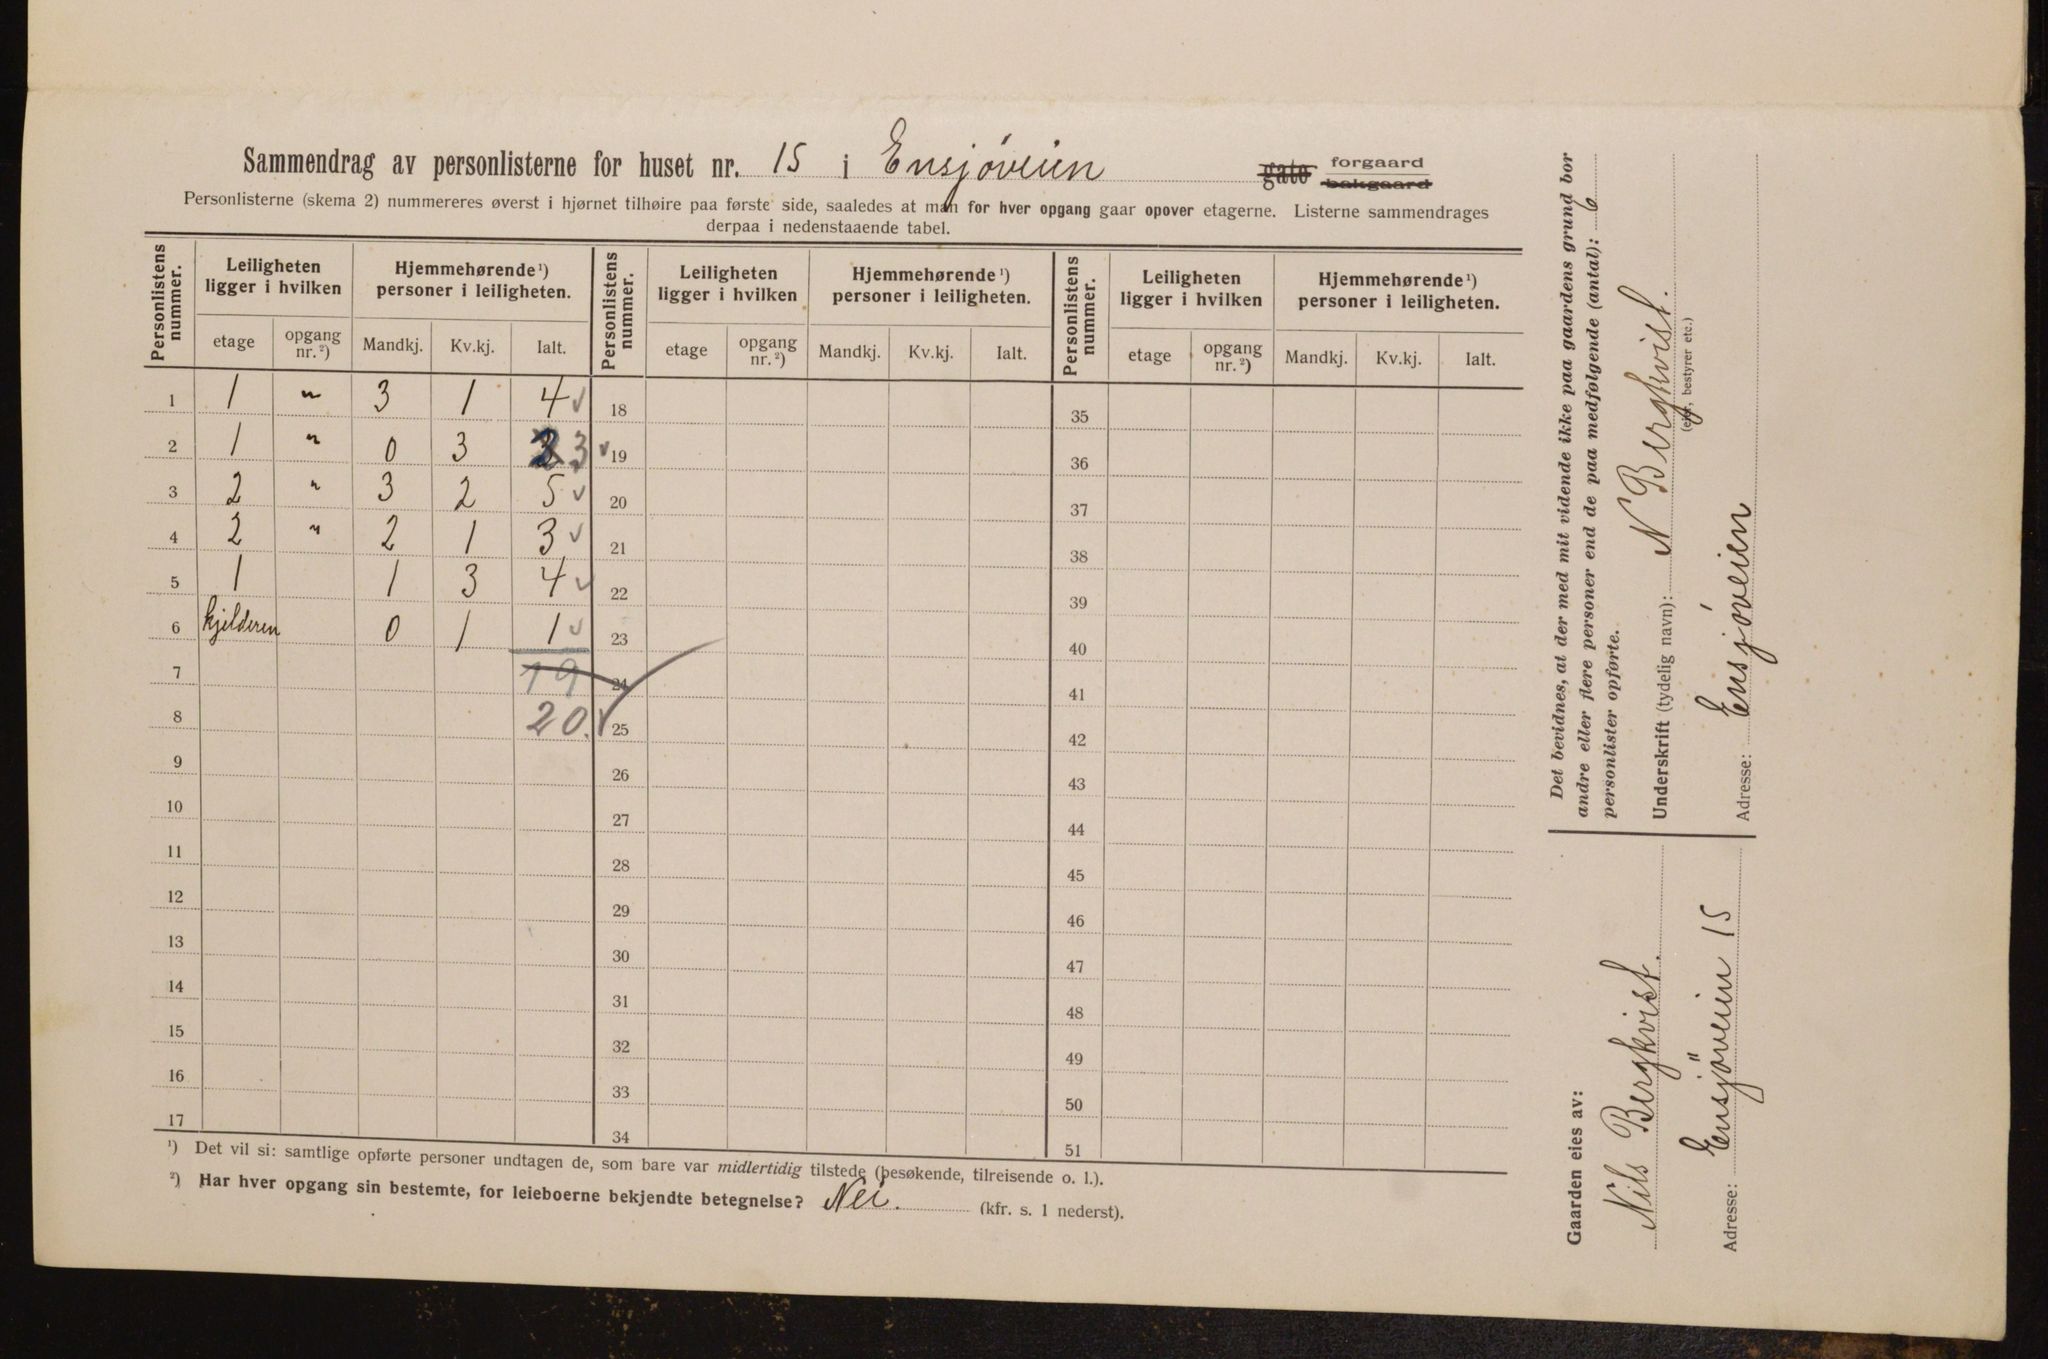 Sammendrag av personlisterne for huset nr. 15 i Ensjøveien gate forgaard bakgaard
Personlisterne (skema 2) nummereres øverst i hjørnet tilhøire paa første side, saaledes at man for hver opgang gaar opover etagerne. Listerne sammendrages
derpaa i nedenstaaende tabel.
Personlistens nummer. Leiligheten ligger i hvilken Hjemmehørende ¹) personer i leiligheten. Personlistens nummer. Leiligheten ligger i hvilken Hjemmehørende ¹) personer i leiligheten. Personlistens nummer. Leiligheten ligger i hvilken Hjemmehørende ¹) personer i leiligheten.
etage opgang nr. ²) Mandkj. Kv.kj. Ialt. etage opgang nr. ²) Mandkj. Kv.kj. Ialt. etage opgang nr. ²) Mandkj. Kv.kj. Ialt.
1 1 " 3 1 4 ✓ 18 35
2 1 " 0 3 3 ✓ 19 36
3 2 " 3 2 5 ✓ 20 37
4 2 " 2 1 3 ✓ 21 38
5 1 1 3 4 ✓ 22 39
6 kjelderen 0 1 1 ✓ 23 40
7 19 24 41
8 20. ✓ 25 42
9 26 43
10 27 44
11 28 45
12 29 46
13 30 47
14 31 48
15 32 49
16 33 50
17 34 51
¹) Det vil si: samtlige opførte personer undtagen de, som bare var midlertidig tilstede (besøkende, tilreisende o. l.).
²) Har hver opgang sin bestemte, for leieboerne bekjendte betegnelse? Nei. (kfr. s. 1 nederst).
Det bevidnes, at der med mit vidende ikke paa gaardens grund bor
andre eller flere personer end de paa medfølgende (antal): 6
personlister opførte.
Underskrift (tydelig navn): N Bergkvist.
(eier, bestyrer etc.)
Adresse: Ensjøveien
Gaarden eies av:
Nils Bergkvist.
Adresse: Ensjöveien 15